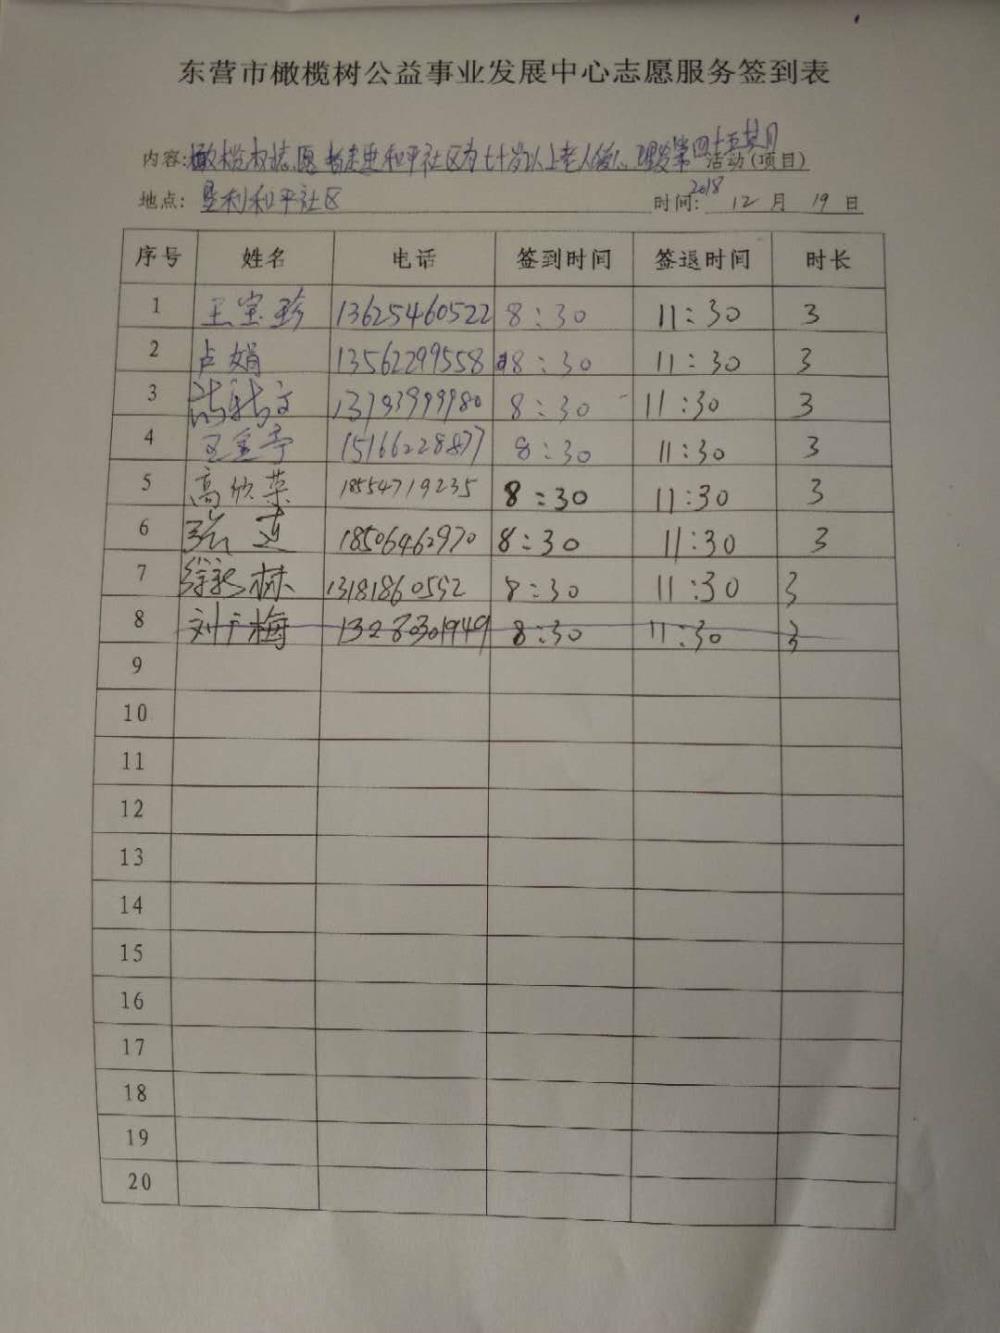 东营市橄榄树公益事业发展中心志愿服务签到表
内容:橄榄树志愿者走进和平社区为七十岁以上老人爱心理发第四十五 活动(项目)
地点: 垦利和平社区 时间: 2018 12 月 19 日
序号 姓名 电话 签到时间 签退时间 时长
1 王宝珍 13625460522 8:30 11:30 3
2 卢娟 13562299558 8:30 11:30 3
3 13793999980 8:30 11:30 3
4 15166228877 8:30 11:30 3
5 高欣荣 18554719235 8:30 11:30 3
6 张莲 18506462970 8:30 11:30 3
7 徐新林 13181860592 8:30 11:30 3
8 刘广梅 13280301949 8:30 11:30 3
9
10
11
12
13
14
15
16
17
18
19
20